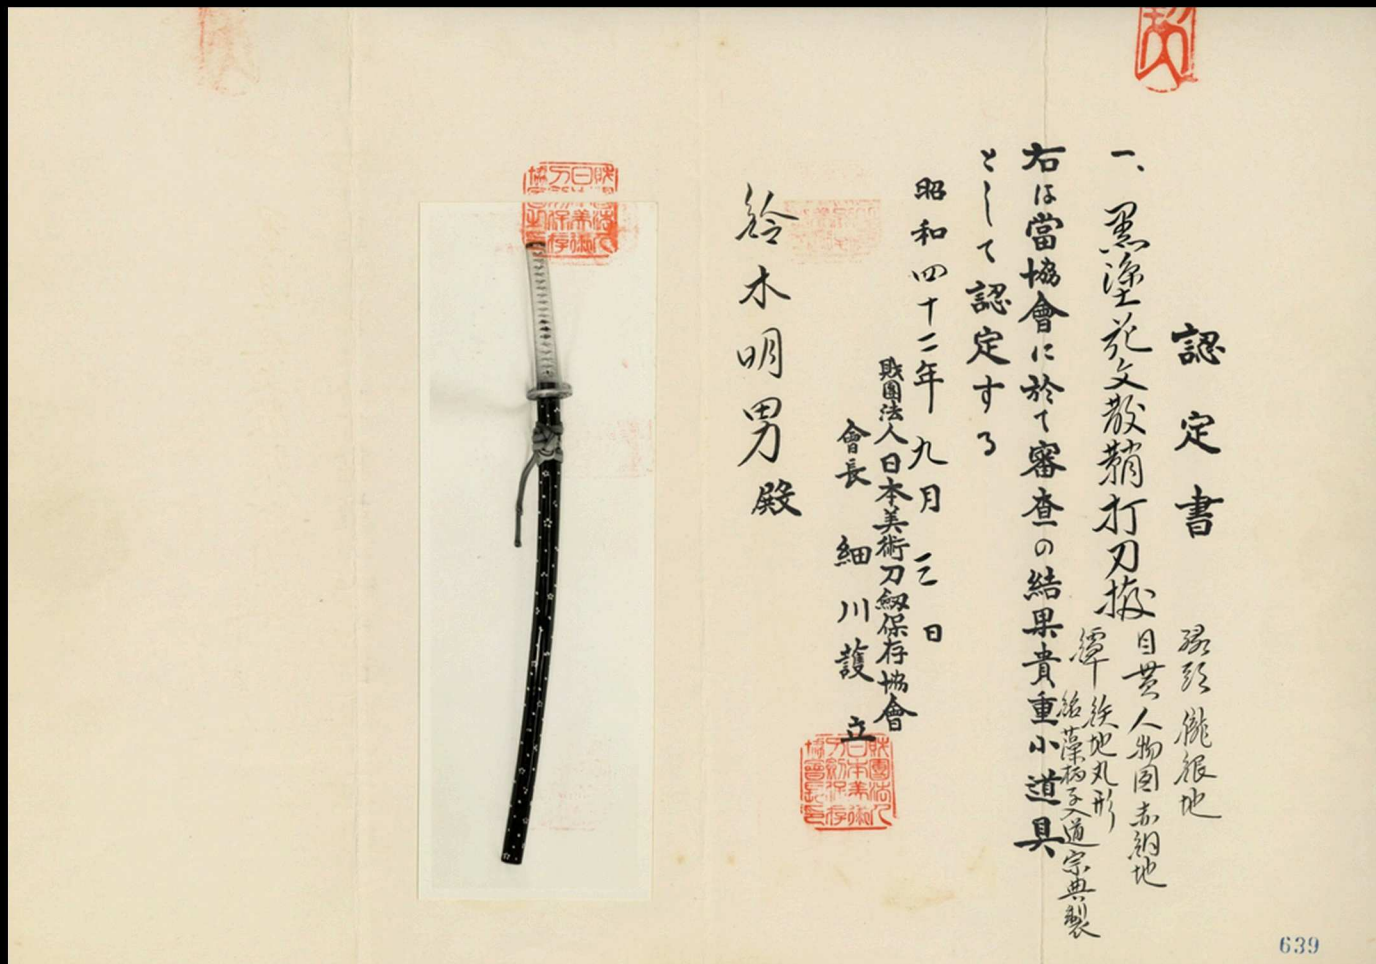 認定書
一、黒塗花文散鞘打刀拵
縁頭 朧銀地
目貫 人物図 赤銅地
鐔 鉄地丸形
銘 藻柄子入道宗典製
右は當協會に於て審査の結果貴重小道具
として認定する
昭和四十二年九月三日
財團法人日本美術刀剱保存協會
會長 細川護立
鈴木明男殿
639